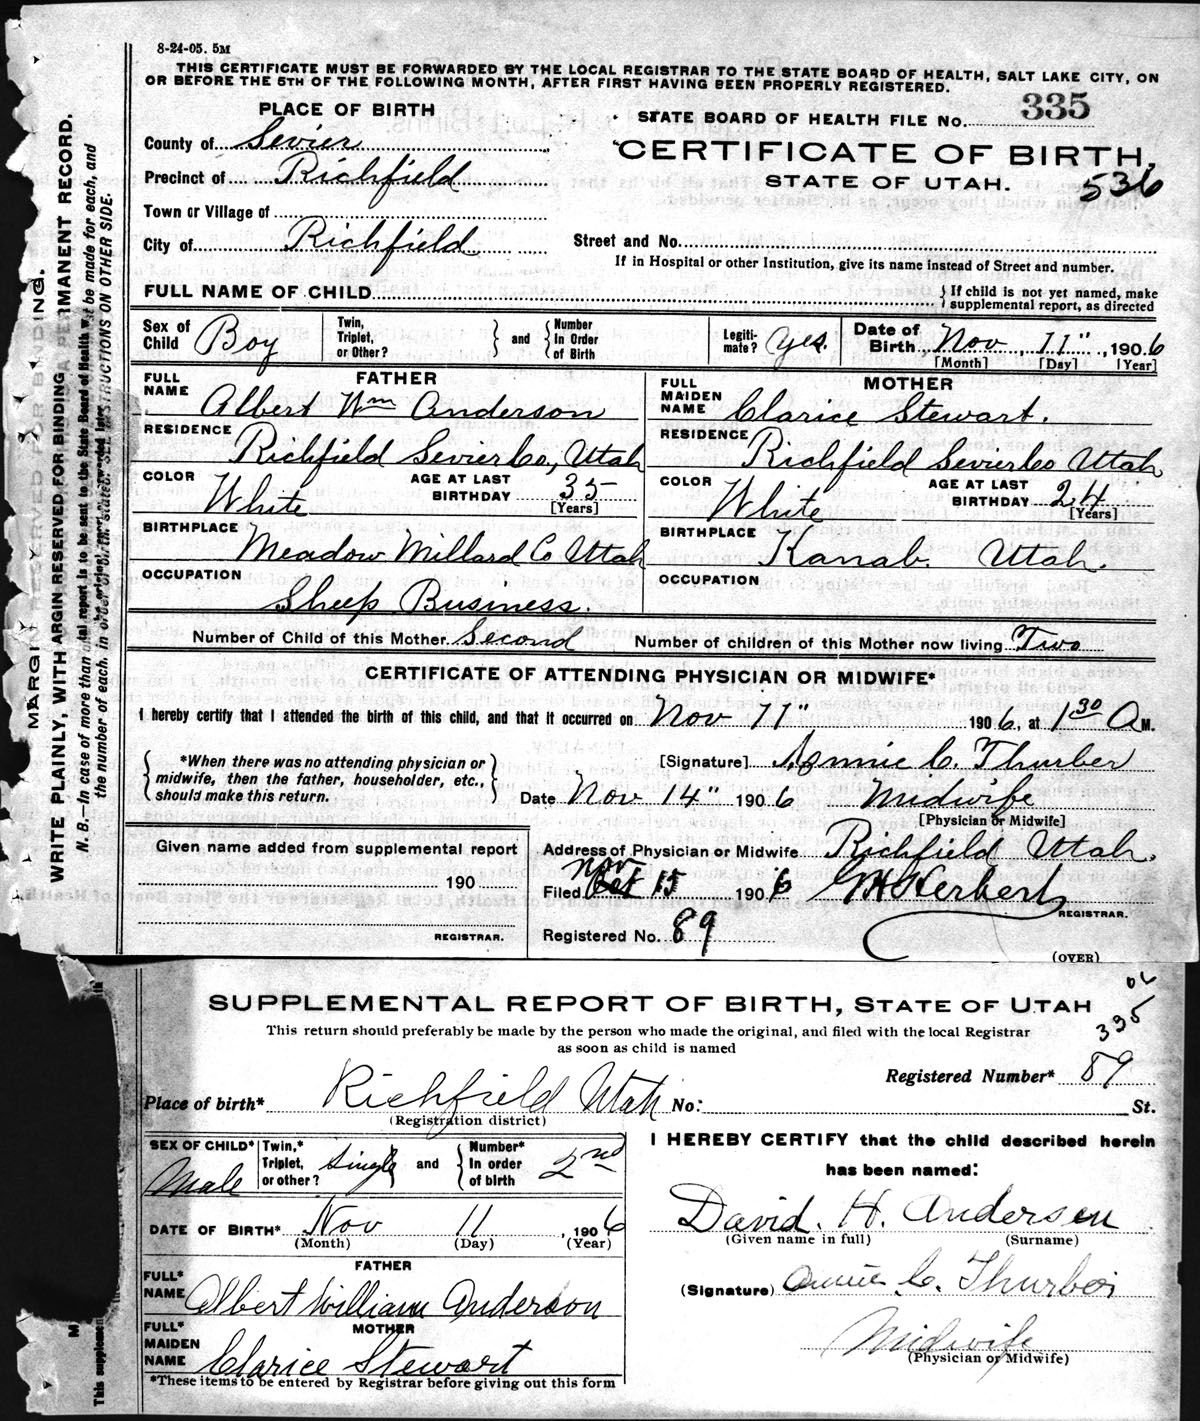 8-24-05. 5M
THIS CERTIFICATE MUST BE FORWARDED BY THE LOCAL REGISTRAR TO THE STATE BOARD OF HEALTH, SALT LAKE CITY, ON
OR BEFORE THE 5TH OF THE FOLLOWING MONTH, AFTER FIRST HAVING BEEN PROPERLY REGISTERED.
PLACE OF BIRTH
STATE BOARD OF HEALTH FILE No. 335
County of Sevier
CERTIFICATE OF BIRTH,
Precinct of Richfield
STATE OF UTAH. 536
Town or Village of
City of Richfield
Street and No.
If in Hospital or other Institution, give its name instead of Street and number.
FULL NAME OF CHILD
If child is not yet named, make
supplemental report, as directed
Sex of Child Boy
Twin, Triplet, or Other?
and
Number In Order of Birth
Legiti-mate? Yes.
Date of Birth Nov, 11", 1906
[Month] [Day] [Year]
FATHER
FULL NAME Albert Wm Anderson
RESIDENCE Richfield Sevier Co, Utah
COLOR White
AGE AT LAST BIRTHDAY 35
[Years]
BIRTHPLACE Meadow Millard Co Utah
OCCUPATION Sheep Business.
MOTHER
FULL MAIDEN NAME Clarice Stewart.
RESIDENCE Richfield Sevier Co Utah
COLOR White
AGE AT LAST BIRTHDAY 24
[Years]
BIRTHPLACE Kanab. Utah.
OCCUPATION
Number of Child of this Mother Second
Number of children of this Mother now living Two
CERTIFICATE OF ATTENDING PHYSICIAN OR MIDWIFE*
I hereby certify that I attended the birth of this child, and that it occurred on Nov 11" 1906, at 1 30 A M.
*When there was no attending physician or
midwife, then the father, householder, etc.,
should make this return.
[Signature] Annie C. Thurber
Date Nov 14" 1906 Midwife
[Physician or Midwife]
Given name added from supplemental report
190
REGISTRAR.
Address of Physician or Midwife Richfield Utah.
Nov
Filed Oct 15 1906 G H Herbert
REGISTRAR.
Registered No. 89
(OVER)
MARGIN RESERVED FOR BINDING.
WRITE PLAINLY, WITH
ARGIN RESERVED FOR BINDING
PERMANENT RECORD.
N. B.—In case of more than
tal report is to be sent to the State Board of Health
st be made for each, and
the number of each, in order of birth, stated.
STRUCTIONS ON OTHER SIDE.
SUPPLEMENTAL REPORT OF BIRTH, STATE OF UTAH
335
06
This return should preferably be made by the person who made the original, and filed with the local Registrar
as soon as child is named
Registered Number* 89
Place of birth* Richfield Utah No: St.
(Registration district)
SEX OF CHILD* Male
Twin,* Triplet, or other? Single
and
Number* In order of birth 2nd
DATE OF BIRTH* Nov 11, 1906
(Month) (Day) (Year)
FATHER
FULL* NAME Albert William Anderson
MOTHER
FULL* MAIDEN NAME Clarice Stewart
*These items to be entered by Registrar before giving out this form
I HEREBY CERTIFY that the child described herein
has been named:
David. H. Anderson
(Given name in full) (Surname)
(Signature) Annie C. Thurber
Midwife
(Physician or Midwife)
This supplemen